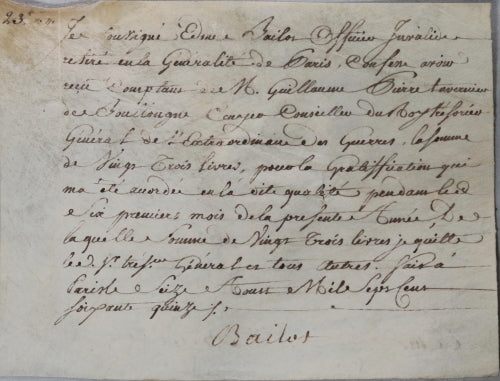 23.# "
Je Soussigné Edme Bailot Officier Invalide
retiré en la Généralité de Paris, Confesse avoir
reçu Comptant de M. Guillaume Pierre tavernier
de Boullongne Ecuyer Conseiller du Roy trésorier
Général de l'Extraordinaire des Guerres, la somme
de Vingt Trois livres, pour la Gratiffication qui
m'a été accordée en la dite qualité pendant les
Six premiers mois de la présente Année, De
laquelle Somme de Vingt Trois livres je quitte
le d. Sr. trésier. Général et tous autres. fait à
Paris le Seize Aoust Mil Sept Cent
soixante quinze /.
Bailot